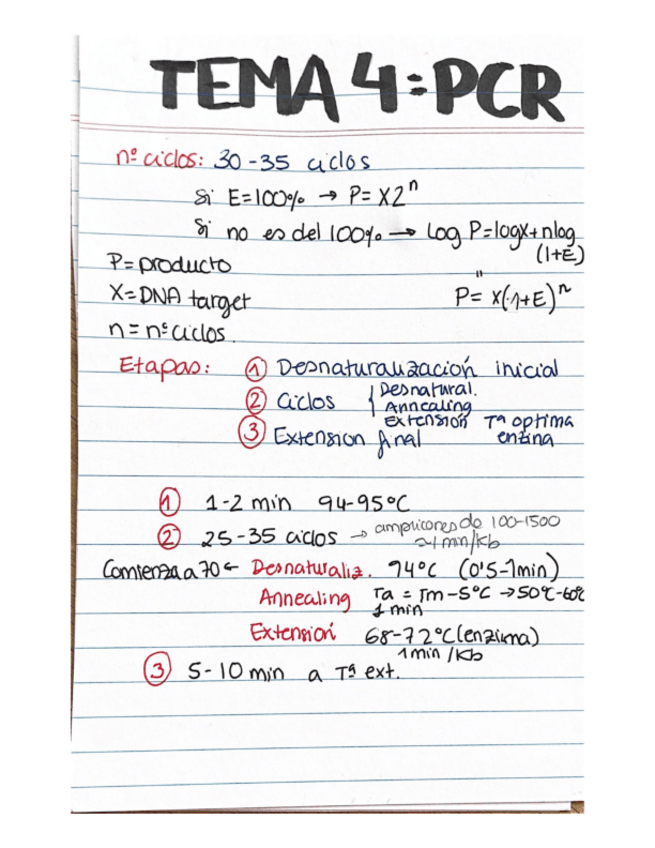 TEMA 4: PCR
nº ciclos: 30-35 ciclos
Si E=100% → P= X2ⁿ
Si no es del 100% → Log P=logX+nlog
(1+E)
P= producto
"
X= DNA target
P= X(1+E)ⁿ
n= nº ciclos.
Etapas: ① Desnaturalización inicial
② Ciclos { Desnatural.
Anncaling
Extensión Tª optima
③ Extension final enzima
① 1-2 min 94-95ºC
② 25-35 ciclos → amplicones de 100-1500
~1 min/Kb
Comienza a 70 ← Desnaturaliz. 94ºC (0'5-1min)
Annealing Ta = Tm-5ºC → 50ºC-60ºC
1 min
Extensión 68-72ºC (enzima)
1min /Kb
③ 5-10 min a Tª ext.